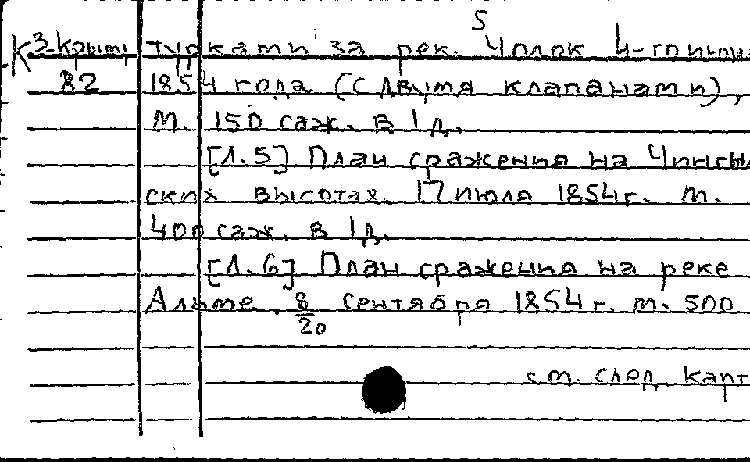 5
К 3-Крым турками за рек. Чолок 4-го июня
82 1854 года (с двумя клапанами),
м. 150 саж. в 1 д.
[Л.5] План сражения на Чингыл
ских высотах. 17 июля 1854 г. м.
400 саж. в 1 д.
[Л.6] План сражения на реке
Альме. 8/20 сентября 1854 г. м. 500
см. след. карт